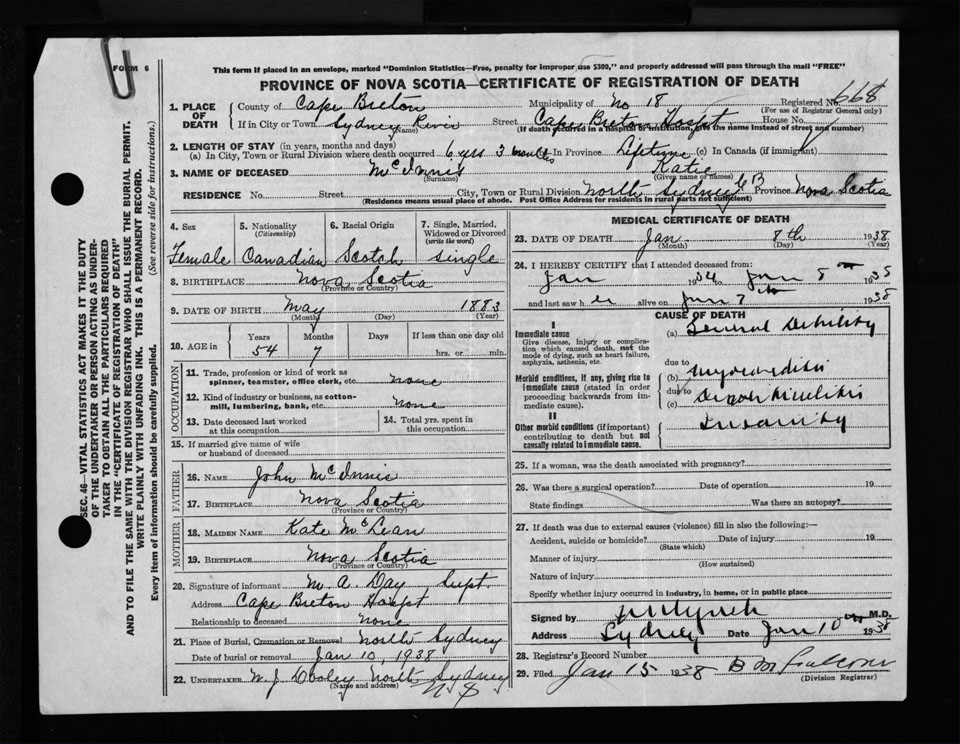 FORM 6
This form if placed in an envelope, marked "Dominion Statistics—Free, penalty for improper use $300," and properly addressed will pass through the mail "FREE"
PROVINCE OF NOVA SCOTIA—CERTIFICATE OF REGISTRATION OF DEATH
SEC. 46—VITAL STATISTICS ACT MAKES IT THE DUTY
OF THE UNDERTAKER OR PERSON ACTING AS UNDER-
TAKER TO OBTAIN ALL THE PARTICULARS REQUIRED
IN THE "CERTIFICATE OF REGISTRATION OF DEATH"
AND TO FILE THE SAME WITH THE DIVISION REGISTRAR WHO SHALL ISSUE THE BURIAL PERMIT.
WRITE PLAINLY WITH UNFADING INK. THIS IS A PERMANENT RECORD.
Every item of information should be carefully supplied. (See reverse side for instructions.)
1. PLACE OF DEATH County of Cape Breton Municipality of No 18 Registered No. 668
(For use of Registrar General only)
If in City or Town Sydney River Street Cape Breton Hospt House No.
(Name) (If death occurred in a hospital or institution, give the name instead of street and number)
2. LENGTH OF STAY (in years, months and days)
(a) In City, Town or Rural Division where death occurred 6 yrs 3 months In Province Lifetime (c) In Canada (if immigrant)
3. NAME OF DECEASED McInnis Katie
(Surname) (Given name or names)
RESIDENCE No. Street City, Town or Rural Division North Sydney C B Province Nova Scotia
(Residence means usual place of abode. Post Office Address for residents in rural parts not sufficient)
4. Sex 5. Nationality (Citizenship) 6. Racial Origin 7. Single, Married, Widowed or Divorced (write the word)
Female Canadian Scotch single
8. BIRTHPLACE Nova Scotia
(Province or Country)
9. DATE OF BIRTH May 1883
(Month) (Day) (Year)
10. AGE in Years Months Days If less than one day old
54 7 hrs. or min.
OCCUPATION
11. Trade, profession or kind of work as
spinner, teamster, office clerk, etc. none
12. Kind of industry or business, as cotton-
mill, lumbering, bank, etc. none
13. Date deceased last worked
at this occupation
14. Total yrs. spent in
this occupation
15. If married give name of wife
or husband of deceased
FATHER
16. NAME John McInnis
17. BIRTHPLACE Nova Scotia
(Province or Country)
MOTHER
18. MAIDEN NAME Kate McLean
19. BIRTHPLACE Nova Scotia
(Province or Country)
20. Signature of informant M. A. Day Supt
Address Cape Breton Hospt
Relationship to deceased none
21. Place of Burial, Cremation or Removal North Sydney
Date of burial or removal Jan 10, 1938
22. UNDERTAKER W. J. Dooley North Sydney
(Name and address) N S
MEDICAL CERTIFICATE OF DEATH
23. DATE OF DEATH Jan 8th 1938
(Month) (Day) (Year)
24. I HEREBY CERTIFY that I attended deceased from:
Jan 1934 to Jan 8th 1938
and last saw her alive on Jan 7th 1938
CAUSE OF DEATH
I
Immediate cause
Give disease, injury or complica-
tion which caused death, not the
mode of dying, such as heart failure,
asphyxia, asthenia, etc.
(a) General Debility
due to
Morbid conditions, if any, giving rise to
immediate cause (stated in order
proceeding backwards from im-
mediate cause).
(b) Myocarditis
due to
(c)
II
Other morbid conditions (if important)
contributing to death but not
causally related to immediate cause.
Insanity
25. If a woman, was the death associated with pregnancy?
26. Was there a surgical operation? Date of operation 19
State findings Was there an autopsy?
27. If death was due to external causes (violence) fill in also the following:—
Accident, suicide or homicide? Date of injury 19
(State which)
Manner of injury
(How sustained)
Nature of injury
Specify whether injury occurred in industry, in home, or in public place
Signed by M.D.
Address Sydney Date Jan 10th 1938
28. Registrar's Record Number
29. Filed Jan 15 1938
(Division Registrar)